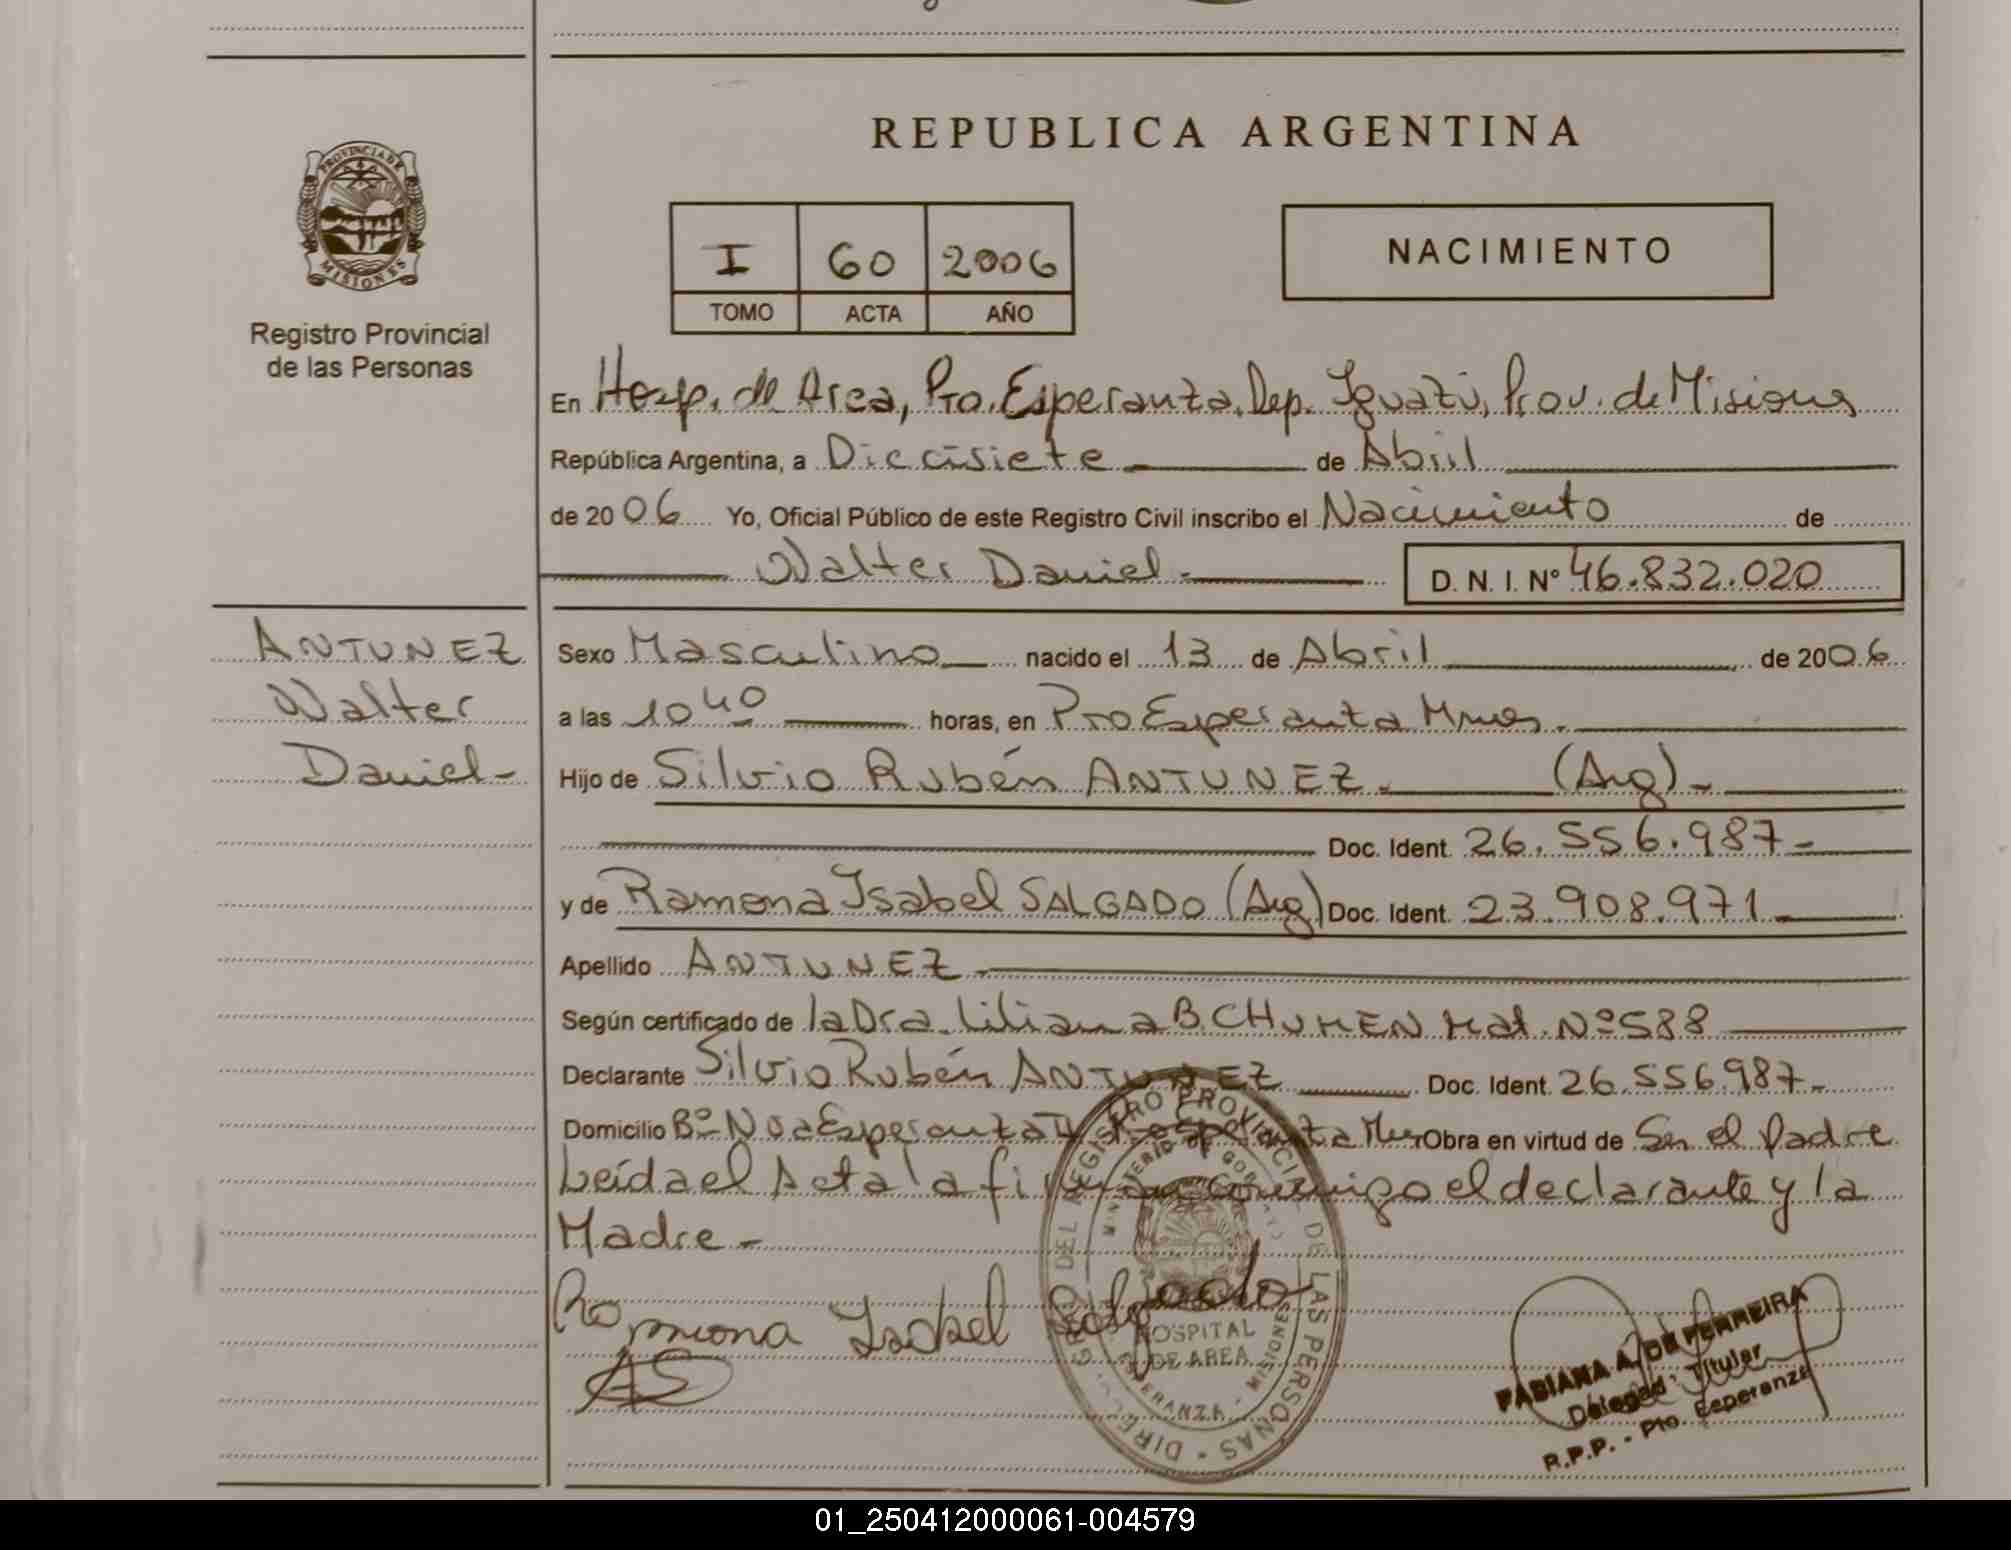 REPUBLICA ARGENTINA
PROVINCIA DE
MISIONES
Registro Provincial
de las Personas
I 60 2006
TOMO ACTA AÑO
NACIMIENTO
En Hosp. de Area, Pto. Esperanza, Dep. Iguazú, Prov. de Misiones
República Argentina, a Diecisiete de Abril
de 2006 Yo, Oficial Público de este Registro Civil inscribo el Nacimiento de
Walter Daniel.- D. N. I. Nº 46.832.020
ANTUNEZ
Walter
Daniel-
Sexo Masculino nacido el 13 de Abril de 2006
a las 10 40 horas, en Pto Esperanza Mnes.
Hijo de Silvio Rubén ANTUNEZ. (Arg)-
Doc. Ident. 26.556.987-
y de Ramona Isabel SALGADO (Arg) Doc. Ident. 23.908.971-
Apellido ANTUNEZ.
Según certificado de la Dra. Liliana B. CHUMEN Mat. Nº 588
Declarante Silvio Rubén ANTUNEZ Doc. Ident. 26.556.987-
Domicilio Bº Nva Esperanza Obra en virtud de Ser el Padre
Leída el Acta la firman conmigo el declarante y la
Madre-
Ramona Isabel Salgado
AS
DIRECCION DEL REGISTRO PROVINCIAL DE LAS PERSONAS
MINISTERIO DE GOBIERNO
HOSPITAL
DE AREA
ESPERANZA - MISIONES
FABIANA A. DE FERREIRA
Delegada Titular
R.P.P. - Pto. Esperanza
01_250412000061-004579